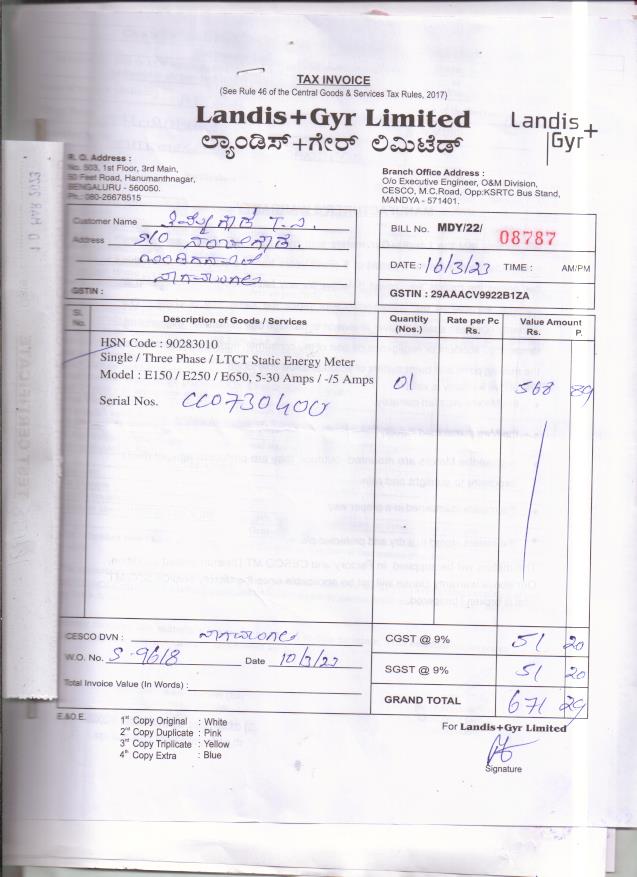 TAX INVOICE
(See Rule 46 of the Central Goods & Services Tax Rules, 2017)
Landis+Gyr Limited
Landis+
Gyr
ಲ್ಯಾಂಡಿಸ್+ಗೇರ್ ಲಿಮಿಟೆಡ್
R. O. Address :
No. 503, 1st Floor, 3rd Main,
50 Feet Road, Hanumanthnagar,
BENGALURU - 560050.
Ph.: 080-26678515
Branch Office Address :
O/o Executive Engineer, O&M Division,
CESCO, M.C.Road, Opp:KSRTC Bus Stand,
MANDYA - 571401.
Customer Name
Address S/O
GSTIN :
BILL No. MDY/22/ 08787
DATE : 16/3/23 TIME : AM/PM
GSTIN : 29AAACV9922B1ZA
Sl. No. Description of Goods / Services Quantity (Nos.) Rate per Pc Rs. Value Amount Rs. P.
HSN Code : 90283010
Single / Three Phase / LTCT Static Energy Meter
Model : E150 / E250 / E650, 5-30 Amps / -/5 Amps 01 568 89
Serial Nos.
CESCO DVN : ನಾಗಮಂಗಲ
W.O. No. S-9618 Date 10/3/23
Total Invoice Value (In Words) :
CGST @ 9% 51 20
SGST @ 9% 51 20
GRAND TOTAL 671 29
E.&O.E.
1st Copy Original : White
2nd Copy Duplicate : Pink
3rd Copy Triplicate : Yellow
4th Copy Extra : Blue
For Landis+Gyr Limited
Signature
10 MAR 2023
TEST CERTIFICATE